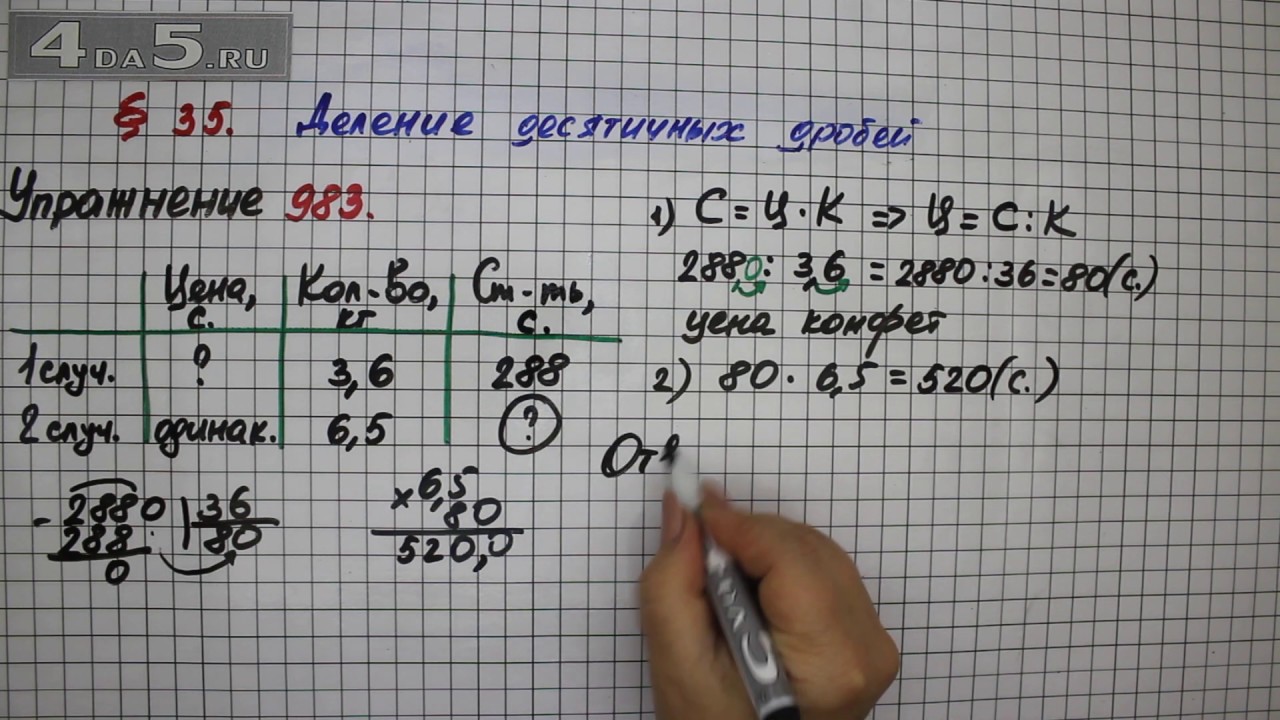 4DA5.RU
§ 35. Деление десятичных дробей
Упражнение 983.
Цена, с. Кол-во, кг Ст-ть, с.
1 случ. ? 3,6 288
2 случ. одинак. 6,5 ?
- 2880 | 36
288 80
0
× 6,5
80
520,0
1) С = Ц · К => Ц = С : К
2880 : 3,6 = 2880 : 36 = 80 (с.)
цена конфет
2) 80 · 6,5 = 520 (с.)
Отв